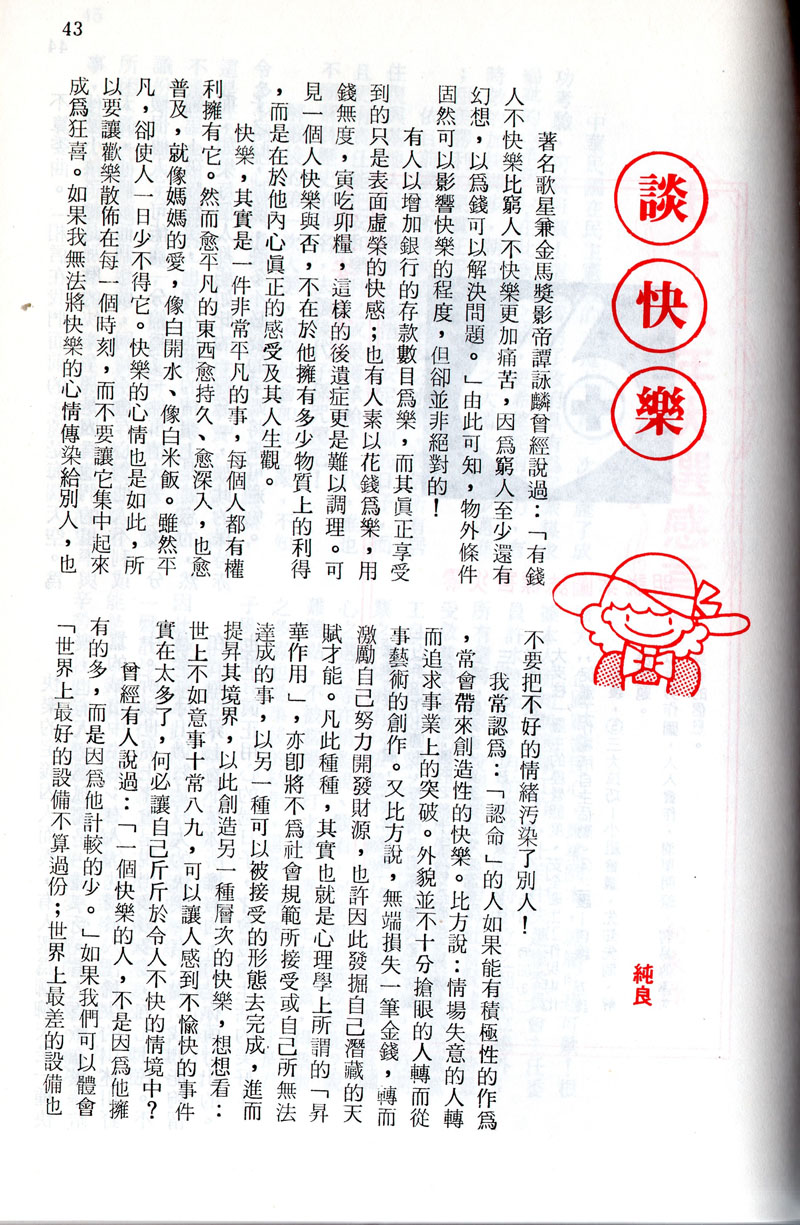 43
談快樂
純良
著名歌星兼金馬獎影帝譚詠麟曾經說過：「有錢
人不快樂比窮人不快樂更加痛苦，因爲窮人至少還有
幻想，以爲錢可以解決問題。」由此可知，物外條件
固然可以影響快樂的程度，但卻並非絕對的！
有人以增加銀行的存款數目爲樂，而其眞正享受
到的只是表面虛榮的快感；也有人素以花錢爲樂，用
錢無度，寅吃卯糧，這樣的後遺症更是難以調理。可
見一個人快樂與否，不在於他擁有多少物質上的利得
，而是在於他內心眞正的感受及其人生觀。
快樂，其實是一件非常平凡的事，每個人都有權
利擁有它。然而愈平凡的東西愈持久、愈深入，也愈
普及，就像媽媽的愛，像白開水、像白米飯。雖然平
凡，卻使人一日少不得它。快樂的心情也是如此，所
以要讓歡樂散佈在每一個時刻，而不要讓它集中起來
成爲狂喜。如果我無法將快樂的心情傳染給別人，也
不要把不好的情緒汚染了別人！
我常認爲：「認命」的人如果能有積極性的作爲
，常會帶來創造性的快樂。比方說：情場失意的人轉
而追求事業上的突破。外貌並不十分搶眼的人轉而從
事藝術的創作。又比方說，無端損失一筆金錢，轉而
激勵自己努力開發財源，也許因此發掘自己潛藏的天
賦才能。凡此種種，其實也就是心理學上所謂的「昇
華作用」，亦卽將不爲社會規範所接受或自己所無法
達成的事，以另一種可以被接受的形態去完成，進而
提昇其境界，以此創造另一種層次的快樂，想想看：
世上不如意事十常八九，可以讓人感到不愉快的事件
實在太多了，何必讓自己斤斤於令人不快的情境中？
曾經有人說過：「一個快樂的人，不是因爲他擁
有的多，而是因爲他計較的少。」如果我們可以體會
「世界上最好的設備不算過份；世界上最差的設備也